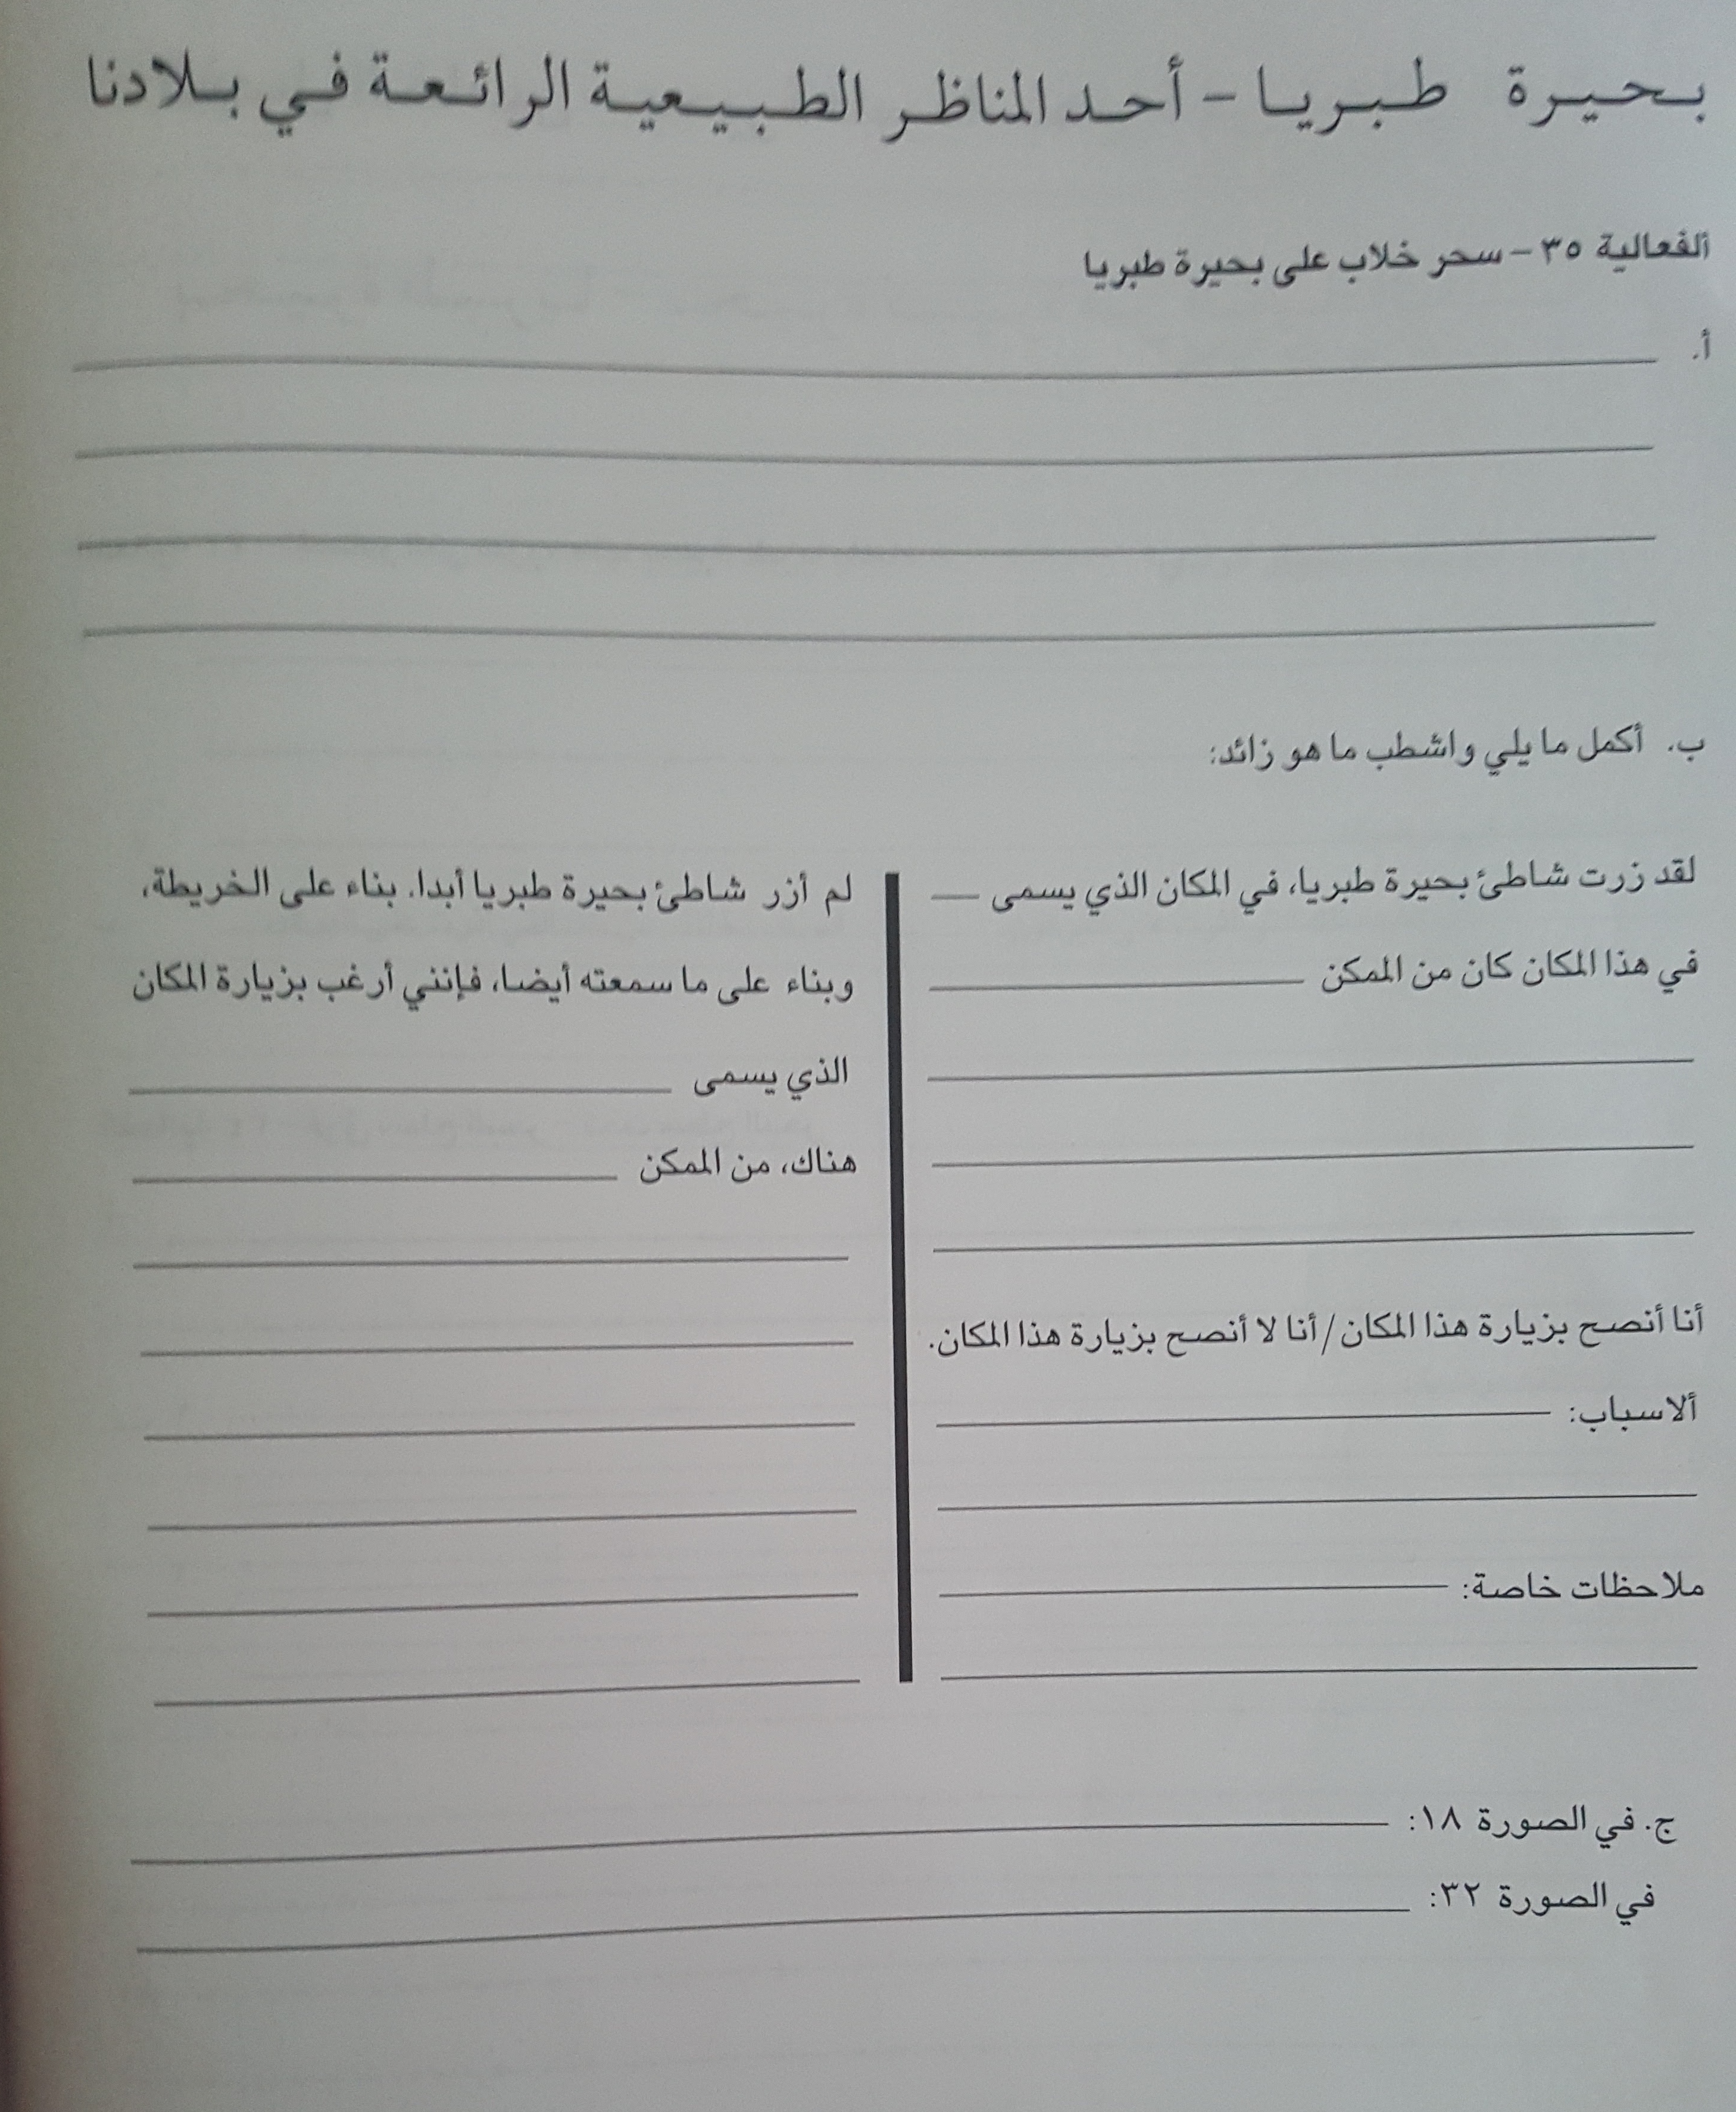 بحيرة طبريا - أحد المناظر الطبيعية الرائعة في بلادنا
ألفعالية ٣٥ - سحر خلاب على بحيرة طبريا
أ.
ب. أكمل ما يلي واشطب ما هو زائد:
لقد زرت شاطئ بحيرة طبريا، في المكان الذي يسمى
في هذا المكان كان من الممكن
أنا أنصح بزيارة هذا المكان/أنا لا أنصح بزيارة هذا المكان.
ألاسباب:
ملاحظات خاصة:
لم أزر شاطئ بحيرة طبريا أبدا. بناء على الخريطة،
وبناء على ما سمعته أيضا، فإنني أرغب بزيارة المكان
الذي يسمى
هناك، من الممكن
ج. في الصورة ١٨:
في الصورة ٣٢: